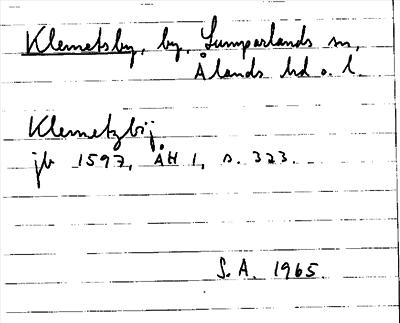 Klemetsby, by, Lumparlands sn,
Ålands hd o. l.
Klemetzbÿ
jb 1597, ÅH 1, s. 323.
S.A. 1965.